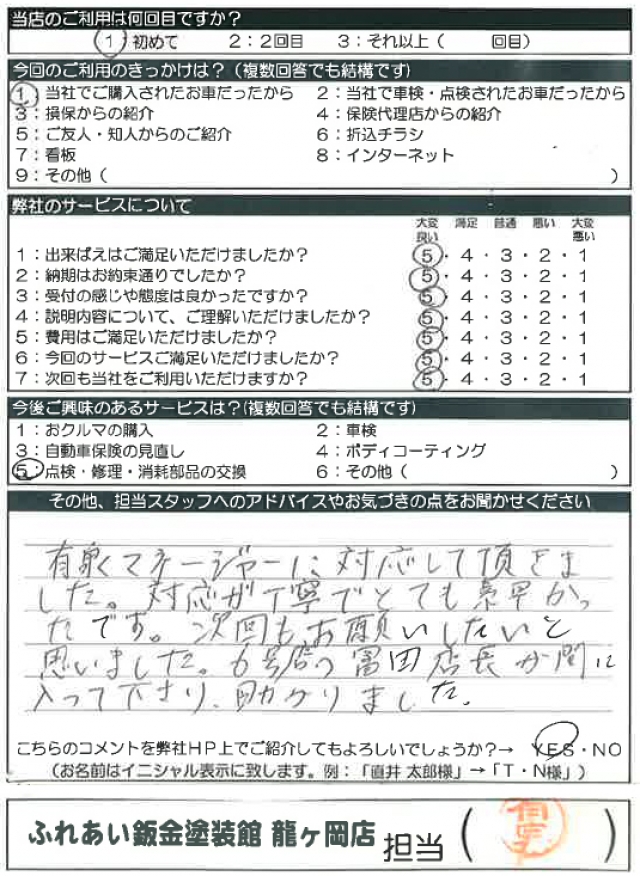 当店のご利用は何回目ですか？
1 初めて 2：2回目 3：それ以上（ 回目）
今回のご利用のきっかけは？（複数回答でも結構です）
1：当社でご購入されたお車だったから 2：当社で車検・点検されたお車だったから
3：損保からの紹介 4：保険代理店からの紹介
5：ご友人・知人からのご紹介 6：折込チラシ
7：看板 8：インターネット
9：その他（ ）
弊社のサービスについて
大変良い 満足 普通 悪い 大変悪い
1：出来ばえはご満足いただけましたか？ 5・4・3・2・1
2：納期はお約束通りでしたか？ 5・4・3・2・1
3：受付の感じや態度は良かったですか？ 5・4・3・2・1
4：説明内容について、ご理解いただけましたか？ 5・4・3・2・1
5：費用はご満足いただけましたか？ 5・4・3・2・1
6：今回のサービスご満足いただけましたか？ 5・4・3・2・1
7：次回も当社をご利用いただけますか？ 5・4・3・2・1
今後ご興味のあるサービスは？(複数回答でも結構です)
1：おクルマの購入 2：車検
3：自動車保険の見直し 4：ボディコーティング
5：点検・修理・消耗部品の交換 6：その他（ ）
その他、担当スタッフへのアドバイスやお気づきの点をお聞かせください
有泉マネージャーに対応して頂きま
した。対応が丁寧でとても素早かっ
たです。次回もお願いしたいと
思いました。6号店の冨田店長が間に
入って下さり、助かりました。
こちらのコメントを弊社HP上でご紹介してもよろしいでしょうか？→ YES・NO
（お名前はイニシャル表示に致します。例：「直井 太郎様」→「T・N様」）
ふれあい鈑金塗装館 龍ヶ岡店 担当（ ）